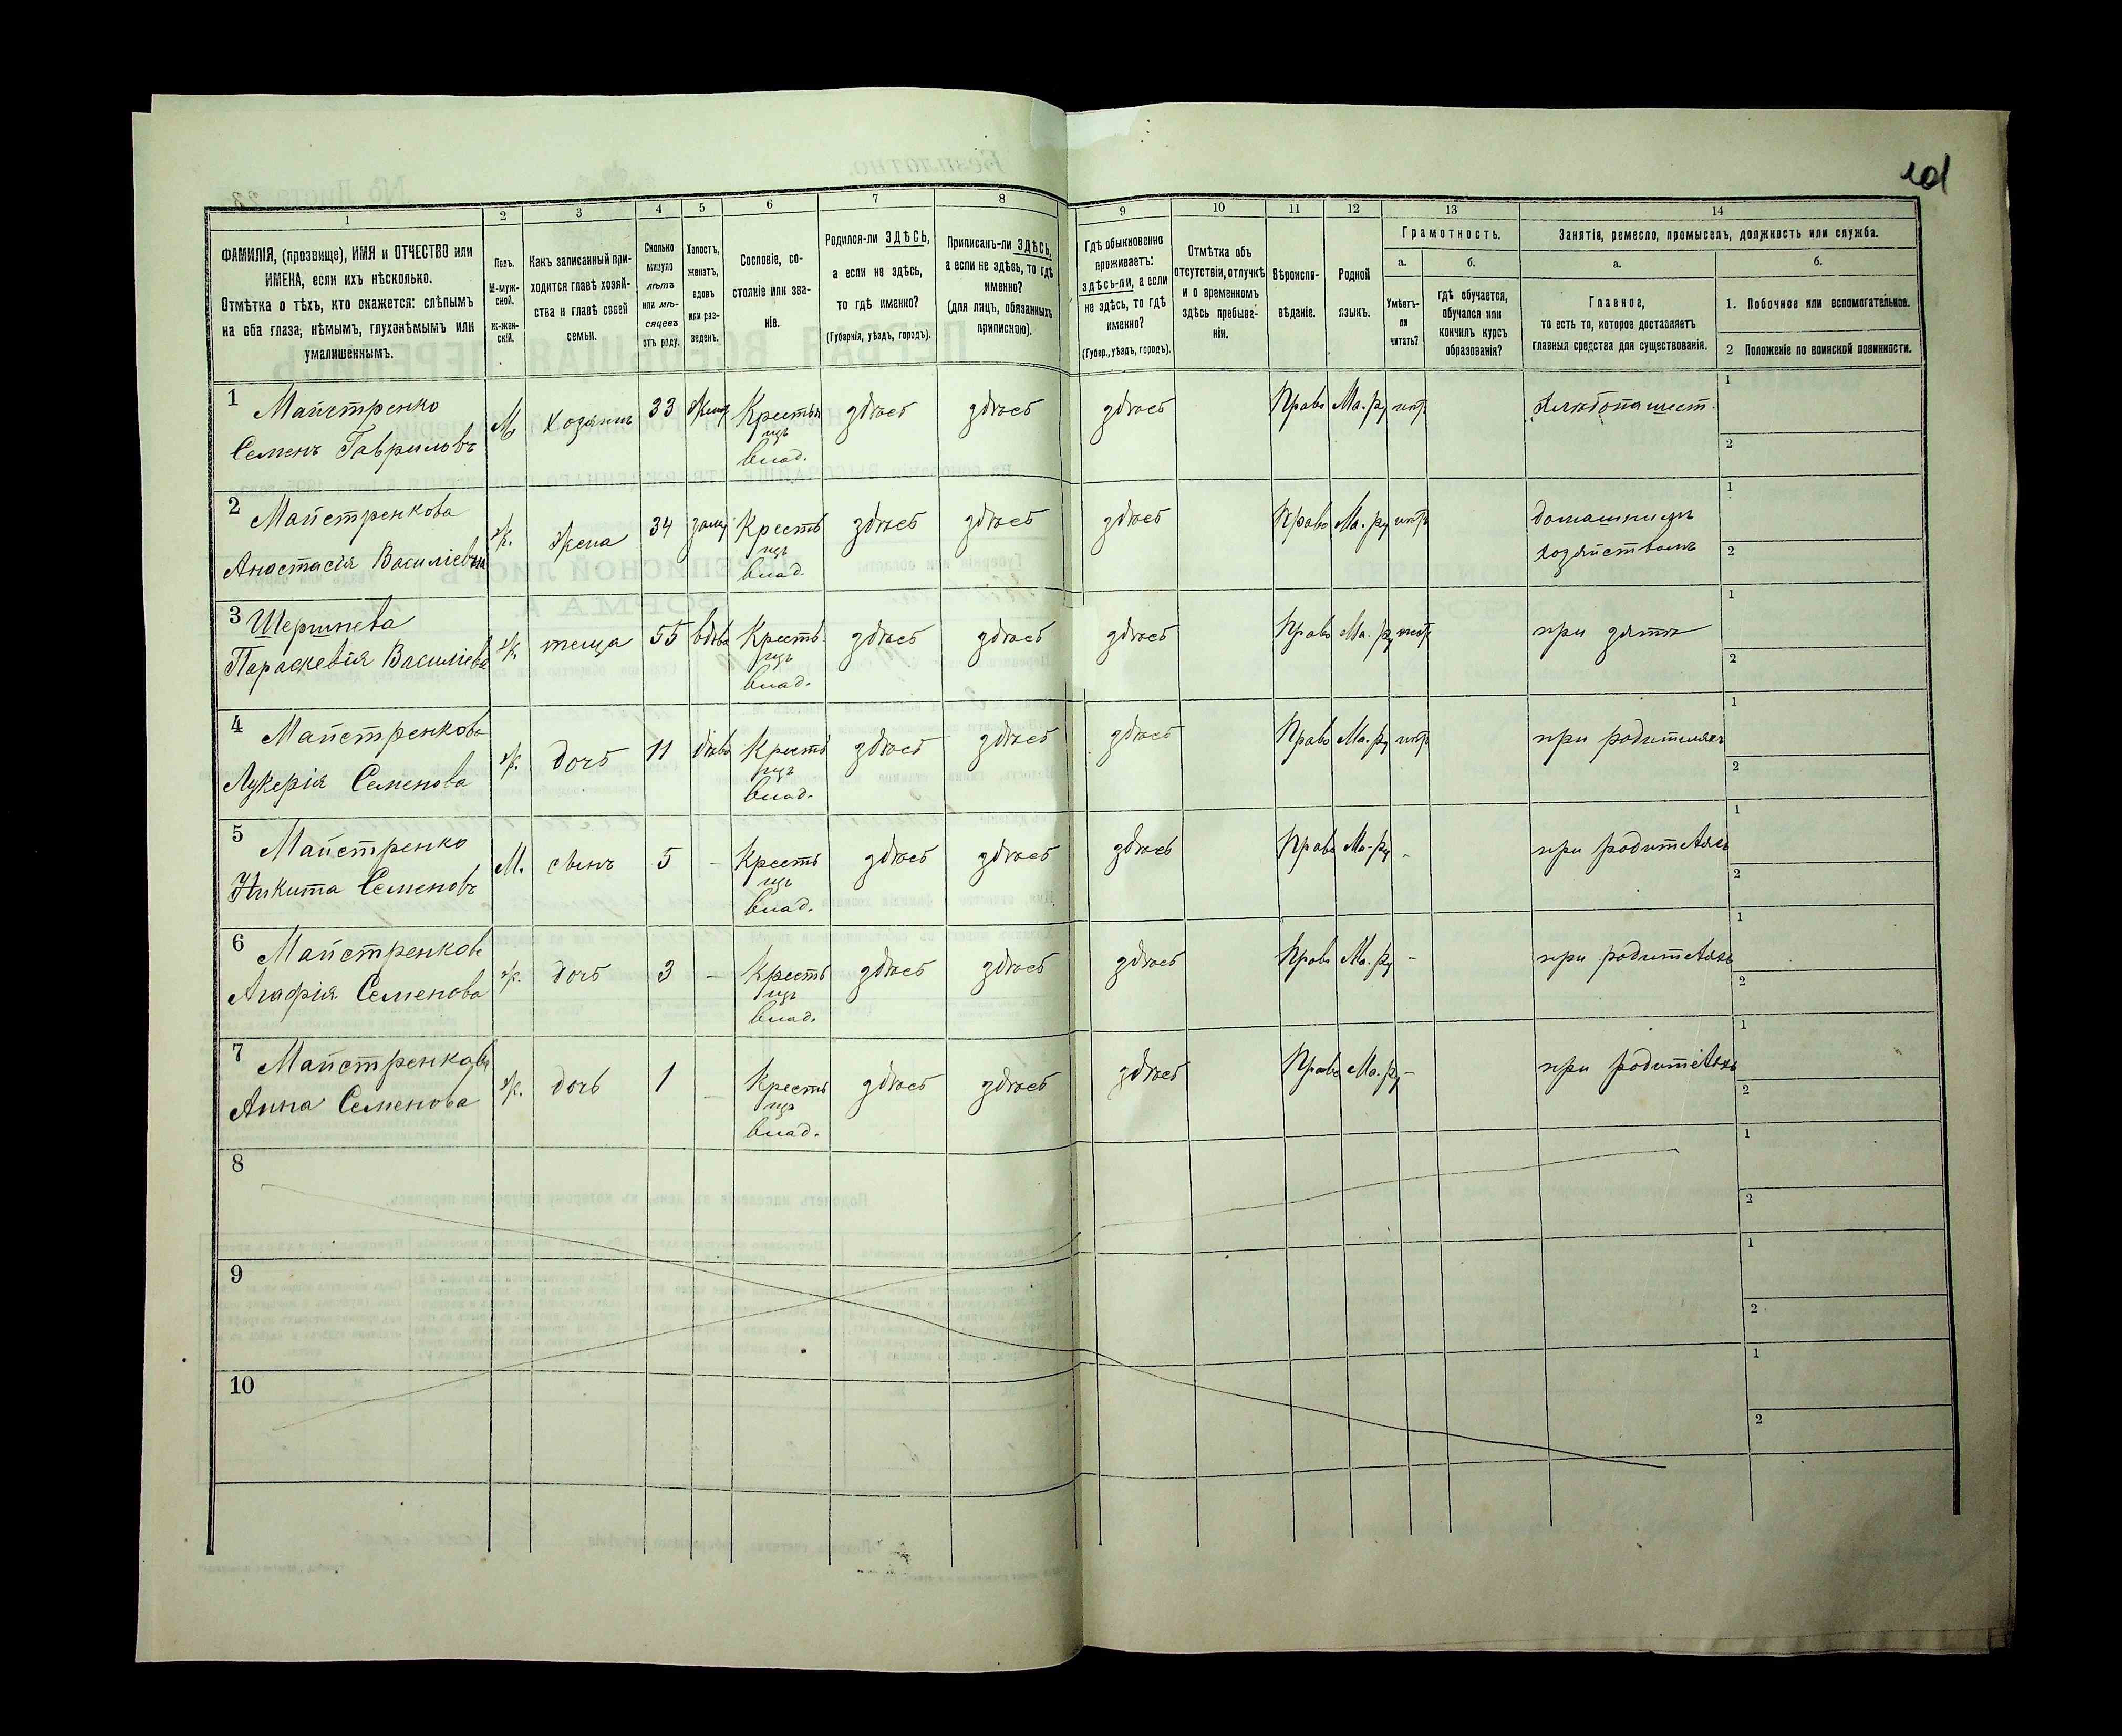 101
1
2
3
4
5
6
7
8
9
10
11
12
13
14
ФАМИЛІЯ, (прозвище), ИМЯ и ОТЧЕСТВО или
ИМЕНА, если ихъ нѣсколько.
Отмѣтка о тѣхъ, кто окажется: слѣпымъ
на оба глаза, нѣмымъ, глухонѣмымъ или
умалишеннымъ.
Полъ.
М-муж-
ской.
Ж-жен-
скій.
Какъ записанный при-
ходится главѣ хозяй-
ства и главѣ своей
семьи.
Сколько
минуло
лѣтъ
или мѣ-
сяцевъ
отъ роду.
Холостъ,
женатъ,
вдовъ
или раз-
веденъ.
Сословіе, со-
стояніе или зва-
ніе.
Родился-ли ЗДѢСЬ,
а если не здѣсь,
то гдѣ именно?
(Губернія, уѣздъ, городъ).
Приписанъ-ли ЗДѢСЬ,
а если не здѣсь, то гдѣ
именно?
(для лицъ, обязанныхъ
припискою).
Гдѣ обыкновенно
проживаетъ:
здѣсь-ли, а если
не здѣсь, то гдѣ
именно?
(Губер., уѣздъ, городъ).
Отмѣтка объ
отсутствіи, отлучкѣ
и о временномъ
здѣсь пребыва-
ніи.
Вѣроиспо-
вѣданіе.
Родной
языкъ.
Грамотность.
а.
Умѣетъ-
ли
читать?
б.
гдѣ обучается,
обучался или
кончилъ курсъ
образованія?
Занятія, ремесло, промыселъ, должность или служба.
а.
Главное,
то есть то, которое доставляетъ
главныя средства для существованія.
б.
1. Побочное или вспомогательное.
2 Положеніе по воинской повинности.
1 Майстренко
Семенъ Гавриловъ
М
Хозяинъ
33
Крестья
изъ
влад.
здѣсь
здѣсь
здѣсь
Право
Ма.-ру
нѣтъ
хлѣбопашест.
1
2
2 Майстренкова
Анастасія Василіевна
Ж.
Жена
34
замуж
Кресть
изъ
влад.
здѣсь
здѣсь
здѣсь
Право
Ма.-ру
нѣтъ
домашнимъ
хозяйствомъ
1
2
3 Шершнева
Параскевія Василіева
Ж.
теща
55
вдова
Кресть
изъ
влад.
здѣсь
здѣсь
здѣсь
Право
Ма.-ру
нѣтъ
при зятѣ
1
2
4 Майстренкова
Лукерія Семенова
Ж.
дочь
11
дѣва
Кресть
изъ
влад.
здѣсь
здѣсь
здѣсь
Право
Ма.-ру
нѣтъ
при родителяхъ
1
2
5 Майстренко
Никита Семеновъ
М.
сынъ
5
-
Кресть
изъ
влад.
здѣсь
здѣсь
здѣсь
Право
Ма-ру
-
при родителяхъ
1
2
6 Майстренкова
Агафія Семенова
Ж.
дочь
3
-
Кресть
изъ
влад.
здѣсь
здѣсь
здѣсь
Право
Ма.-ру
-
при родителяхъ
1
2
7 Майстренкова
Анна Семенова
Ж.
дочь
1
-
Кресть
изъ
влад.
здѣсь
здѣсь
здѣсь
Право
Ма.-ру
-
при родителяхъ
1
2
8
1
2
9
1
2
10
1
2